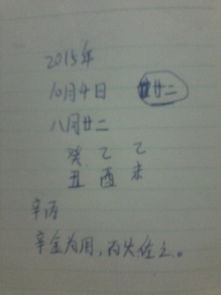 2015年
10月4日 廿二
八月廿二
癸 乙 乙
丑 酉 未
辛丙
辛金为用，丙火佐之。